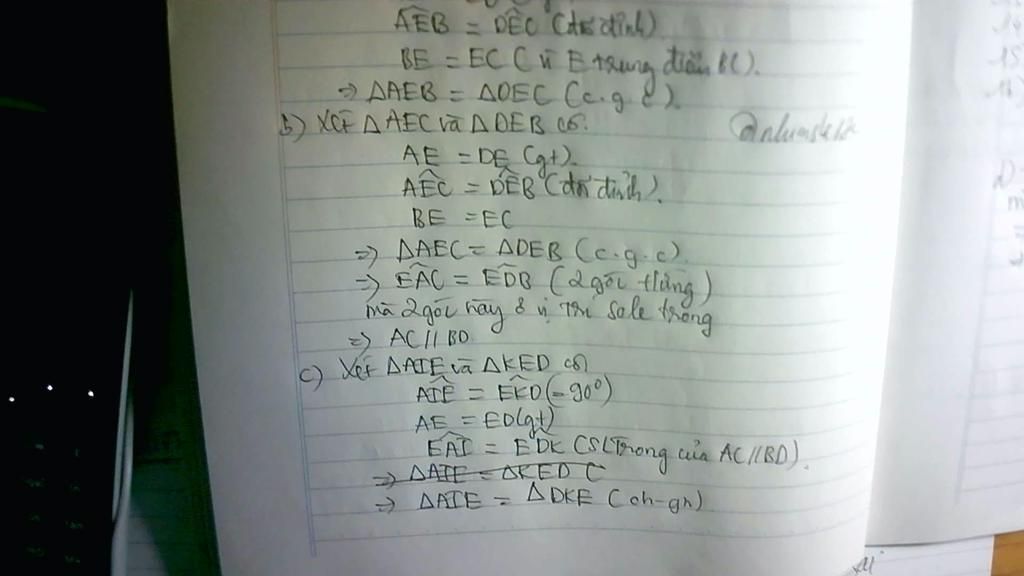 AEB = DEC (đối đỉnh)
BE = EC (vì E trung điểm BC).
=> ΔAEB = ΔDEC (c.g.c).
b) Xét ΔAEC và ΔDEB có:
AE = DE (gt).
AEC = DEB (đối đỉnh).
BE = EC
=> ΔAEC = ΔDEB (c.g.c).
=> EAC = EDB (2 góc t/ứng)
mà 2 góc này ở vị trí sole trong
=> AC // BD
c) Xét ΔAIE và ΔKED có
AIE = EKD (=90°)
AE = ED (gt)
EAI = EDK (SLTrong của AC//BD).
=> ΔAIE = ΔKED (
=> ΔAIE = ΔDKE (ch-gn)